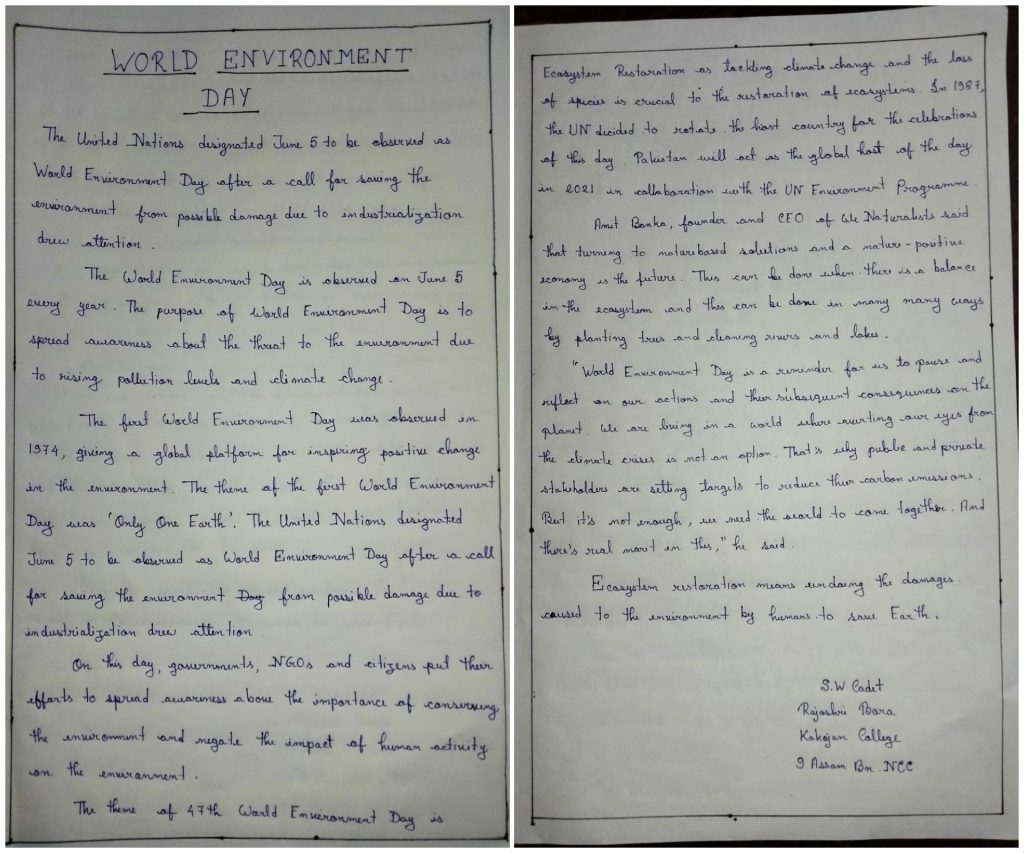 WORLD ENVIRONMENT
DAY
The United Nations designated June 5 to be observed as
World Environment Day after a call for saving the
environment from possible damage due to industrialization
drew attention.
The World Environment Day is observed on June 5
every year. The purpose of World Environment Day is to
spread awareness about the threat to the environment due
to rising pollution levels and climate change.
The first World Environment Day was observed in
1974, giving a global platform for inspiring positive change
in the environment. The theme of the first World Environment
Day was 'Only One Earth'. The United Nations designated
June 5 to be observed as World Environment Day after a call
for saving the environment Day from possible damage due to
industrialization drew attention.
On this day, governments, NGOs and citizens put their
efforts to spread awareness above the importance of conserving
the environment and negate the impact of human activity
on the environment.
The theme of 47th World Environment Day is
Ecosystem Restoration as tackling climate change and the loss
of species is crucial to the restoration of ecosystems. In 1987,
the UN decided to rotate the host country for the celebrations
of this day. Pakistan will act as the global host of the day
in 2021 in collaboration with the UN Environment Programme.
Amit Banka, founder and CEO of We Naturalists said
that turning to naturebased solutions and a nature-positive
economy is the future. This can be done when there is a balance
in the ecosystem and this can be done in many many ways
by planting trees and cleaning rivers and lakes.
"World Environment Day is a reminder for us to pause and
reflect on our actions and their subsequent consequences on the
planet. We are living in a world where averting our eyes from
the climate crises is not an option. That's why public and private
stakeholders are setting targets to reduce their carbon emissions.
But it's not enough, we need the world to come together. And
there's real marit in this," he said.
Ecosystem restoration means undoing the damages
caused to the environment by humans to save Earth.
S.W Cadet
Rajashri Bara
Kakojan College
9 Assam Bn. NCC